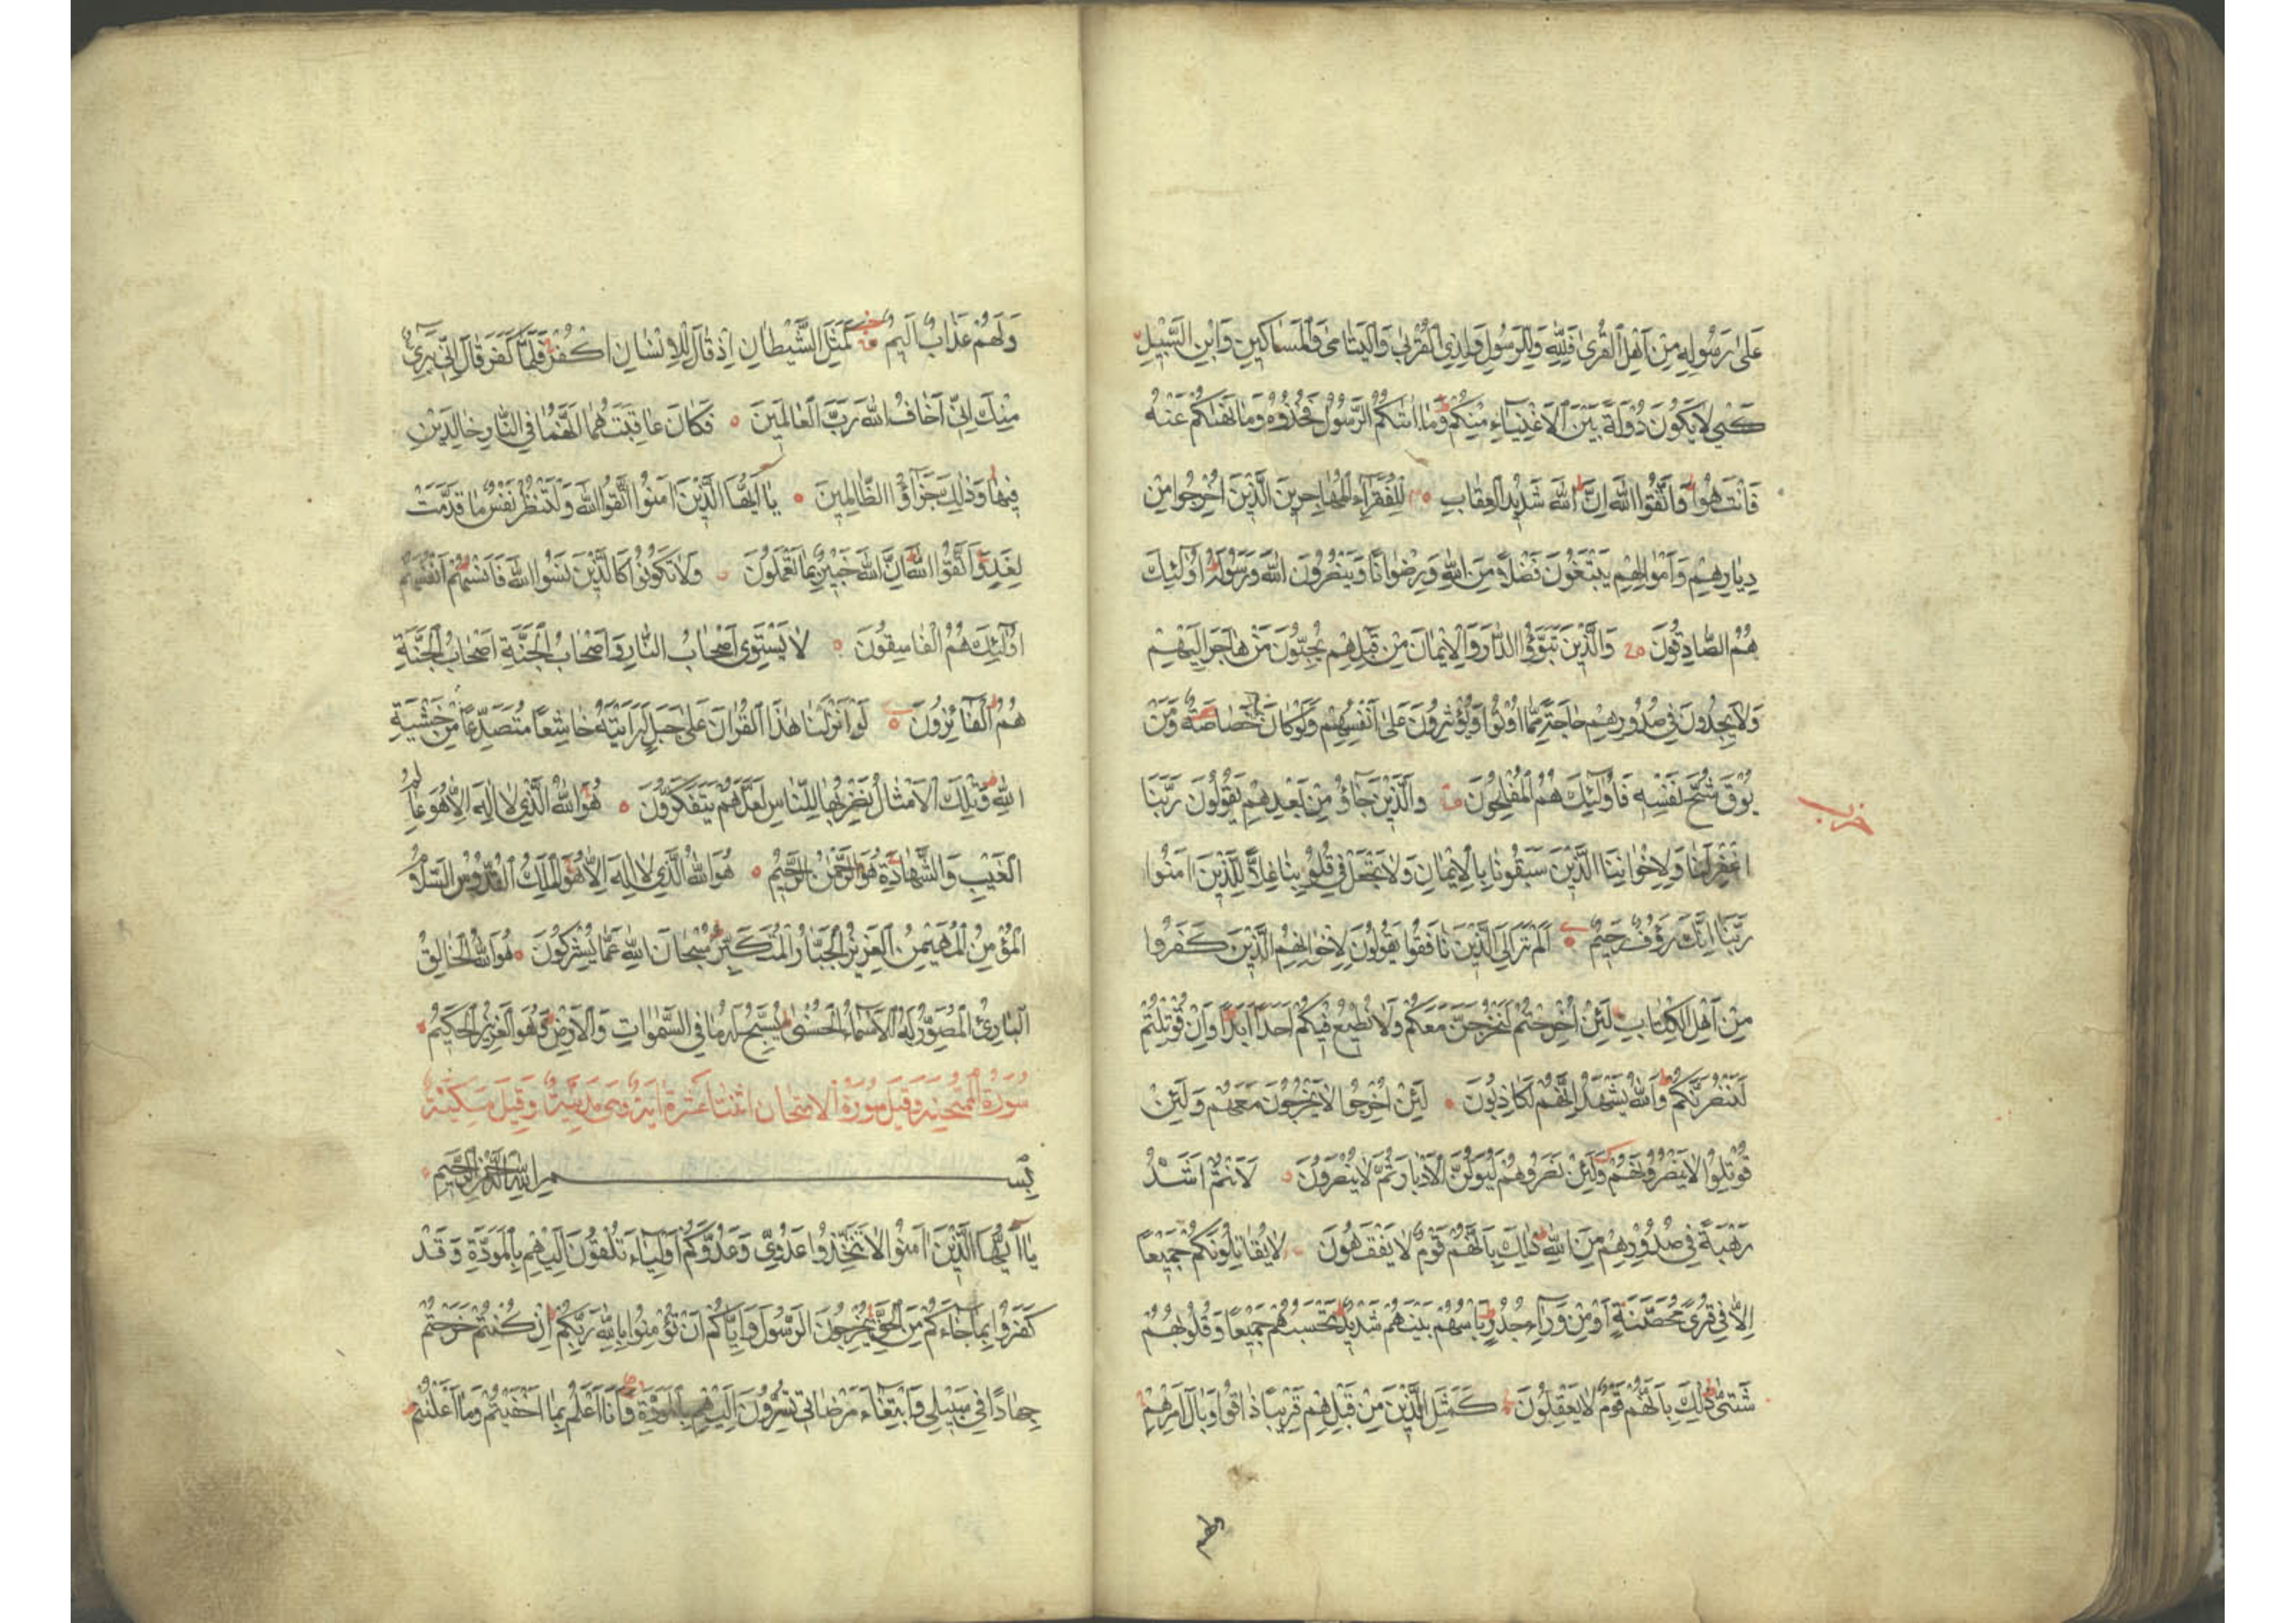 عَلٰى رَسُولِهِ مِنْ اَهْلِ الْقُرٰى فَلِلّٰهِ وَلِلرَّسُولِ وَلِذِي الْقُرْبٰى وَالْيَتَامٰى وَالْمَسَاكِينِ وَابْنِ السَّبِيلِ
كَيْ لَا يَكُونَ دُولَةً بَيْنَ الْاَغْنِيَاءِ مِنْكُمْ وَمَا اٰتٰىكُمُ الرَّسُولُ فَخُذُوهُ وَمَا نَهٰىكُمْ عَنْهُ
فَانْتَهُوا وَاتَّقُوا اللّٰهَ اِنَّ اللّٰهَ شَدِيدُ الْعِقَابِ لِلْفُقَرَاءِ الْمُهَاجِرِينَ الَّذِينَ اُخْرِجُوا مِنْ
دِيَارِهِمْ وَاَمْوَالِهِمْ يَبْتَغُونَ فَضْلًا مِنَ اللّٰهِ وَرِضْوَانًا وَيَنْصُرُونَ اللّٰهَ وَرَسُولَهُ اُولٰئِكَ
هُمُ الصَّادِقُونَ وَالَّذِينَ تَبَوَّؤُا الدَّارَ وَالْاِيمَانَ مِنْ قَبْلِهِمْ يُحِبُّونَ مَنْ هَاجَرَ اِلَيْهِمْ
وَلَا يَجِدُونَ فِي صُدُورِهِمْ حَاجَةً مِمَّا اُوتُوا وَيُؤْثِرُونَ عَلٰى اَنْفُسِهِمْ وَلَوْ كَانَ بِهِمْ خَصَاصَةٌ وَمَنْ
يُوقَ شُحَّ نَفْسِهِ فَاُولٰئِكَ هُمُ الْمُفْلِحُونَ وَالَّذِينَ جَاؤُ مِنْ بَعْدِهِمْ يَقُولُونَ رَبَّنَا
حزب
اغْفِرْ لَنَا وَلِاِخْوَانِنَا الَّذِينَ سَبَقُونَا بِالْاِيمَانِ وَلَا تَجْعَلْ فِي قُلُوبِنَا غِلًّا لِلَّذِينَ اٰمَنُوا
رَبَّنَا اِنَّكَ رَؤُفٌ رَحِيمٌ اَلَمْ تَرَ اِلَى الَّذِينَ نَافَقُوا يَقُولُونَ لِاِخْوَانِهِمُ الَّذِينَ كَفَرُوا
مِنْ اَهْلِ الْكِتَابِ لَئِنْ اُخْرِجْتُمْ لَنَخْرُجَنَّ مَعَكُمْ وَلَا نُطِيعُ فِيكُمْ اَحَدًا اَبَدًا وَاِنْ قُوتِلْتُمْ
لَنَنْصُرَنَّكُمْ وَاللّٰهُ يَشْهَدُ اِنَّهُمْ لَكَاذِبُونَ لَئِنْ اُخْرِجُوا لَا يَخْرُجُونَ مَعَهُمْ وَلَئِنْ
قُوتِلُوا لَا يَنْصُرُونَهُمْ وَلَئِنْ نَصَرُوهُمْ لَيُوَلُّنَّ الْاَدْبَارَ ثُمَّ لَا يُنْصَرُونَ لَاَنْتُمْ اَشَدُّ
رَهْبَةً فِي صُدُورِهِمْ مِنَ اللّٰهِ ذٰلِكَ بِاَنَّهُمْ قَوْمٌ لَا يَفْقَهُونَ لَا يُقَاتِلُونَكُمْ جَمِيعًا
اِلَّا فِي قُرًى مُحَصَّنَةٍ اَوْ مِنْ وَرَاءِ جُدُرٍ بَاْسُهُمْ بَيْنَهُمْ شَدِيدٌ تَحْسَبُهُمْ جَمِيعًا وَقُلُوبُهُمْ
شَتّٰى ذٰلِكَ بِاَنَّهُمْ قَوْمٌ لَا يَعْقِلُونَ كَمَثَلِ الَّذِينَ مِنْ قَبْلِهِمْ قَرِيبًا ذَاقُوا وَبَالَ اَمْرِهِمْ
ولهم
وَلَهُمْ عَذَابٌ اَلِيمٌ كَمَثَلِ الشَّيْطَانِ اِذْ قَالَ لِلْاِنْسَانِ اكْفُرْ فَلَمَّا كَفَرَ قَالَ اِنِّي بَرِيءٌ
مِنْكَ اِنِّي اَخَافُ اللّٰهَ رَبَّ الْعَالَمِينَ فَكَانَ عَاقِبَتَهُمَا اَنَّهُمَا فِي النَّارِ خَالِدَيْنِ
فِيهَا وَذٰلِكَ جَزَاؤُا الظَّالِمِينَ يَا اَيُّهَا الَّذِينَ اٰمَنُوا اتَّقُوا اللّٰهَ وَلْتَنْظُرْ نَفْسٌ مَا قَدَّمَتْ
لِغَدٍ وَاتَّقُوا اللّٰهَ اِنَّ اللّٰهَ خَبِيرٌ بِمَا تَعْمَلُونَ وَلَا تَكُونُوا كَالَّذِينَ نَسُوا اللّٰهَ فَاَنْسٰيهُمْ اَنْفُسَهُمْ
اُولٰئِكَ هُمُ الْفَاسِقُونَ لَا يَسْتَوِي اَصْحَابُ النَّارِ وَاَصْحَابُ الْجَنَّةِ اَصْحَابُ الْجَنَّةِ
هُمُ الْفَائِزُونَ لَوْ اَنْزَلْنَا هٰذَا الْقُرْاٰنَ عَلٰى جَبَلٍ لَرَاَيْتَهُ خَاشِعًا مُتَصَدِّعًا مِنْ خَشْيَةِ
اللّٰهِ وَتِلْكَ الْاَمْثَالُ نَضْرِبُهَا لِلنَّاسِ لَعَلَّهُمْ يَتَفَكَّرُونَ هُوَ اللّٰهُ الَّذِي لَا اِلٰهَ اِلَّا هُوَ عَالِمُ
الْغَيْبِ وَالشَّهَادَةِ هُوَ الرَّحْمٰنُ الرَّحِيمُ هُوَ اللّٰهُ الَّذِي لَا اِلٰهَ اِلَّا هُوَ الْمَلِكُ الْقُدُّوسُ السَّلَامُ
الْمُؤْمِنُ الْمُهَيْمِنُ الْعَزِيزُ الْجَبَّارُ الْمُتَكَبِّرُ سُبْحَانَ اللّٰهِ عَمَّا يُشْرِكُونَ هُوَ اللّٰهُ الْخَالِقُ
الْبَارِئُ الْمُصَوِّرُ لَهُ الْاَسْمَاءُ الْحُسْنٰى يُسَبِّحُ لَهُ مَا فِي السَّمٰوَاتِ وَالْاَرْضِ وَهُوَ الْعَزِيزُ الْحَكِيمُ
سُورَةُ الْمُمْتَحِنَةِ وَقِيلَ سُورَةُ الْاِمْتِحَانِ اثْنَتَا عَشْرَةَ اٰيَةً وَهِيَ مَدَنِيَّةٌ وَقِيلَ مَكِّيَّةٌ
بِسْمِ اللّٰهِ الرَّحْمٰنِ الرَّحِيمِ
يَا اَيُّهَا الَّذِينَ اٰمَنُوا لَا تَتَّخِذُوا عَدُوِّي وَعَدُوَّكُمْ اَوْلِيَاءَ تُلْقُونَ اِلَيْهِمْ بِالْمَوَدَّةِ وَقَدْ
كَفَرُوا بِمَا جَاءَكُمْ مِنَ الْحَقِّ يُخْرِجُونَ الرَّسُولَ وَاِيَّاكُمْ اَنْ تُؤْمِنُوا بِاللّٰهِ رَبِّكُمْ اِنْ كُنْتُمْ خَرَجْتُمْ
جِهَادًا فِي سَبِيلِي وَابْتِغَاءَ مَرْضَاتِي تُسِرُّونَ اِلَيْهِمْ بِالْمَوَدَّةِ وَاَنَا اَعْلَمُ بِمَا اَخْفَيْتُمْ وَمَا اَعْلَنْتُمْ